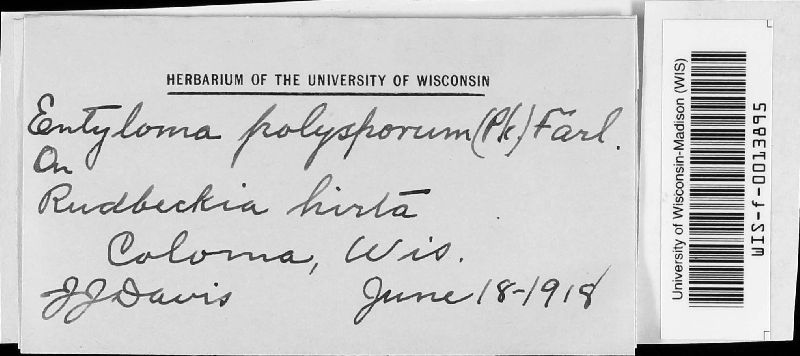 HERBARIUM OF THE UNIVERSITY OF WISCONSIN
Entyloma polysporum (Pk) Farl.
On
Rudbeckia hirta
Coloma, Wis.
JJ Davis June 18-1918
University of Wisconsin-Madison (WIS)
WIS-f-0013895